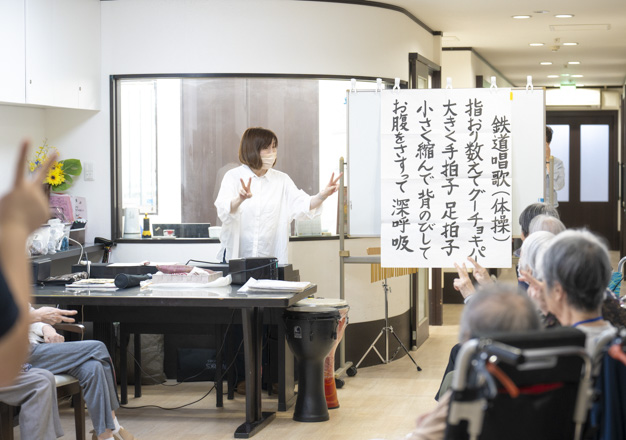 鉄道唱歌(体操)
指おり数えてグーチョキパー
大きく手拍子 足拍子
小さく縮んで 背のびして
お腹をさすって 深呼吸